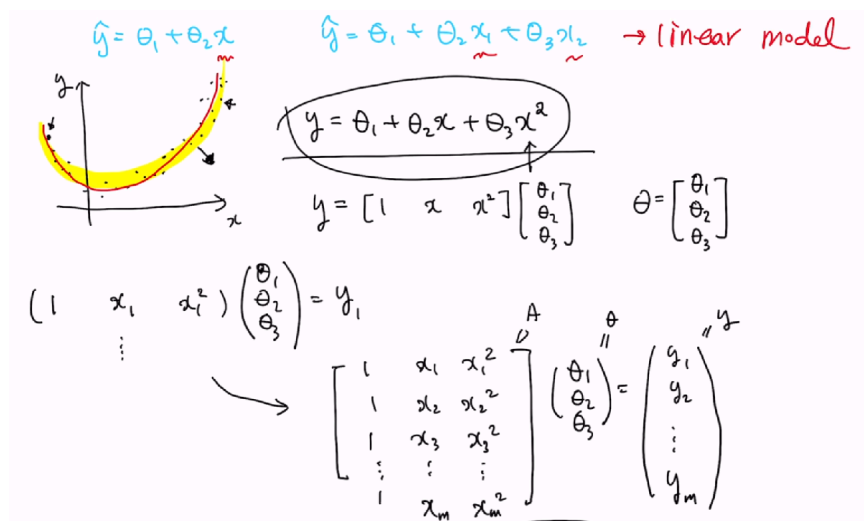 ŷ = θ₁ + θ₂x
ŷ = θ₁ + θ₂x₁ + θ₃x₂ → linear model
y
x
y = θ₁ + θ₂x + θ₃x²
y = [1 x x²] [θ₁ θ₂ θ₃] θ = [θ₁ θ₂ θ₃]
(1 x₁ x₁²) (θ₁ θ₂ θ₃) = y₁
⋮
A θ y
[1 x₁ x₁² (θ₁ (y₁
1 x₂ x₂² θ₂ = y₂
1 x₃ x₃² θ₃) ⋮
⋮ ⋮ ⋮
1 xₘ xₘ²] yₘ)